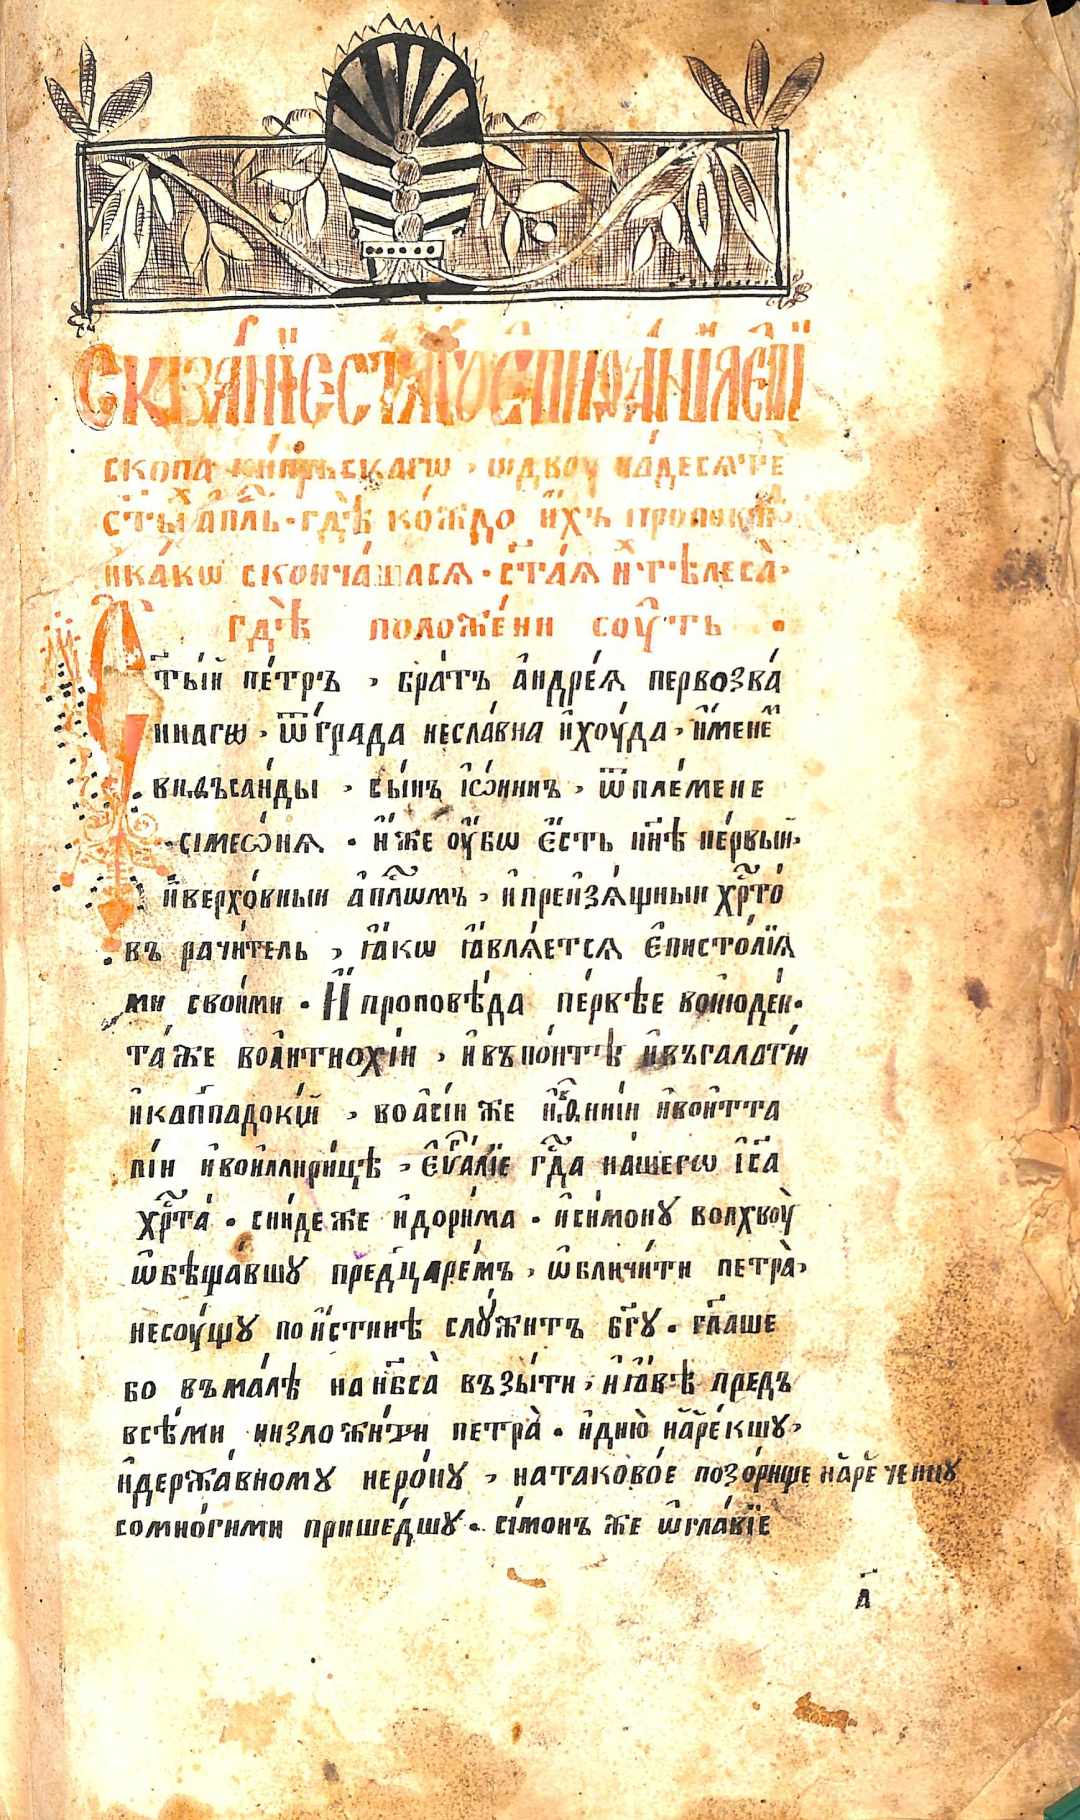 Сказа́нїе ст҃а́гѡ є҆пифа́нїѧ є҆пї
скопа ки́прьскагѡ · ѡ҆двоу на́десѧте
ст҃ы́хъ а҆пл҃ъ · гдѣ̀ ко́ждо и҆́хъ проповѣ́
и҆ка́кѡ сконча́шасѧ · ст҃а́ѧ и҆хъ тѣлеса̀ ·
гдѣ̀ положе́ни соу́ть ·
Ст҃ы́й пе́тръ , бра́тъ а҆ндре́ѧ первозва́
ннагѡ · ѿгра́да несла́вна и҆хоу́да · и҆́менемъ
виѳъсаи́ды , сы́нъ і҆ѡ́нинъ , ѿпле́мене
сімеѡ́нѧ · и҆́же оу҆́бѡ є҆́сть нн҃ѣ пе́рвый ,
и҆верхо́вныи а҆пⷭ҇лѡмъ , и҆преи҆зѧ́щныи хрⷭ҇то́
въ рачи́тель , ꙗ҆́кѡ ꙗ҆влѧ́етсѧ є҆писто́лїѧ
ми свои́ми · И҆ проповѣ́да пе́рвѣе вои҆юде́и ·
та́же воа҆нтиохі́и , и҆въпо́нтѣ и҆въгала́ті́и
и҆каппадокі́й , воа҆сі́и же и҆виѳ҃нні́и и҆вои҆тта
лі́и и҆вои҆ллири́цѣ , є҆ѵⷢ҇а́лїе гдⷭ҇а на́шегѡ і҆с҃а
хрⷭ҇та̀ · сни́де же и҆дори́ма · и҆си́мону волхвоу̀
ѡ҆бѣща́вшу предъцаре́мъ , ѡ҆бличи́ти петра̀ ,
несоу́щу пои҆́стиннѣ слꙋ́житъ бг҃у · гл҃аше
бо въма́лѣ нанб҃са̀ възы́ти , и҆ꙗ҆́вѣ предъ
всѣ́ми низложи́ти петра̀ · и҆дню̀ наре́кшу ,
и҆держа́вному неро́ну , натаково́е позо́рище нарече́нну
сомно́гими прише́дшу · сі́монъ же ѡ҆гла́вїе
а҃